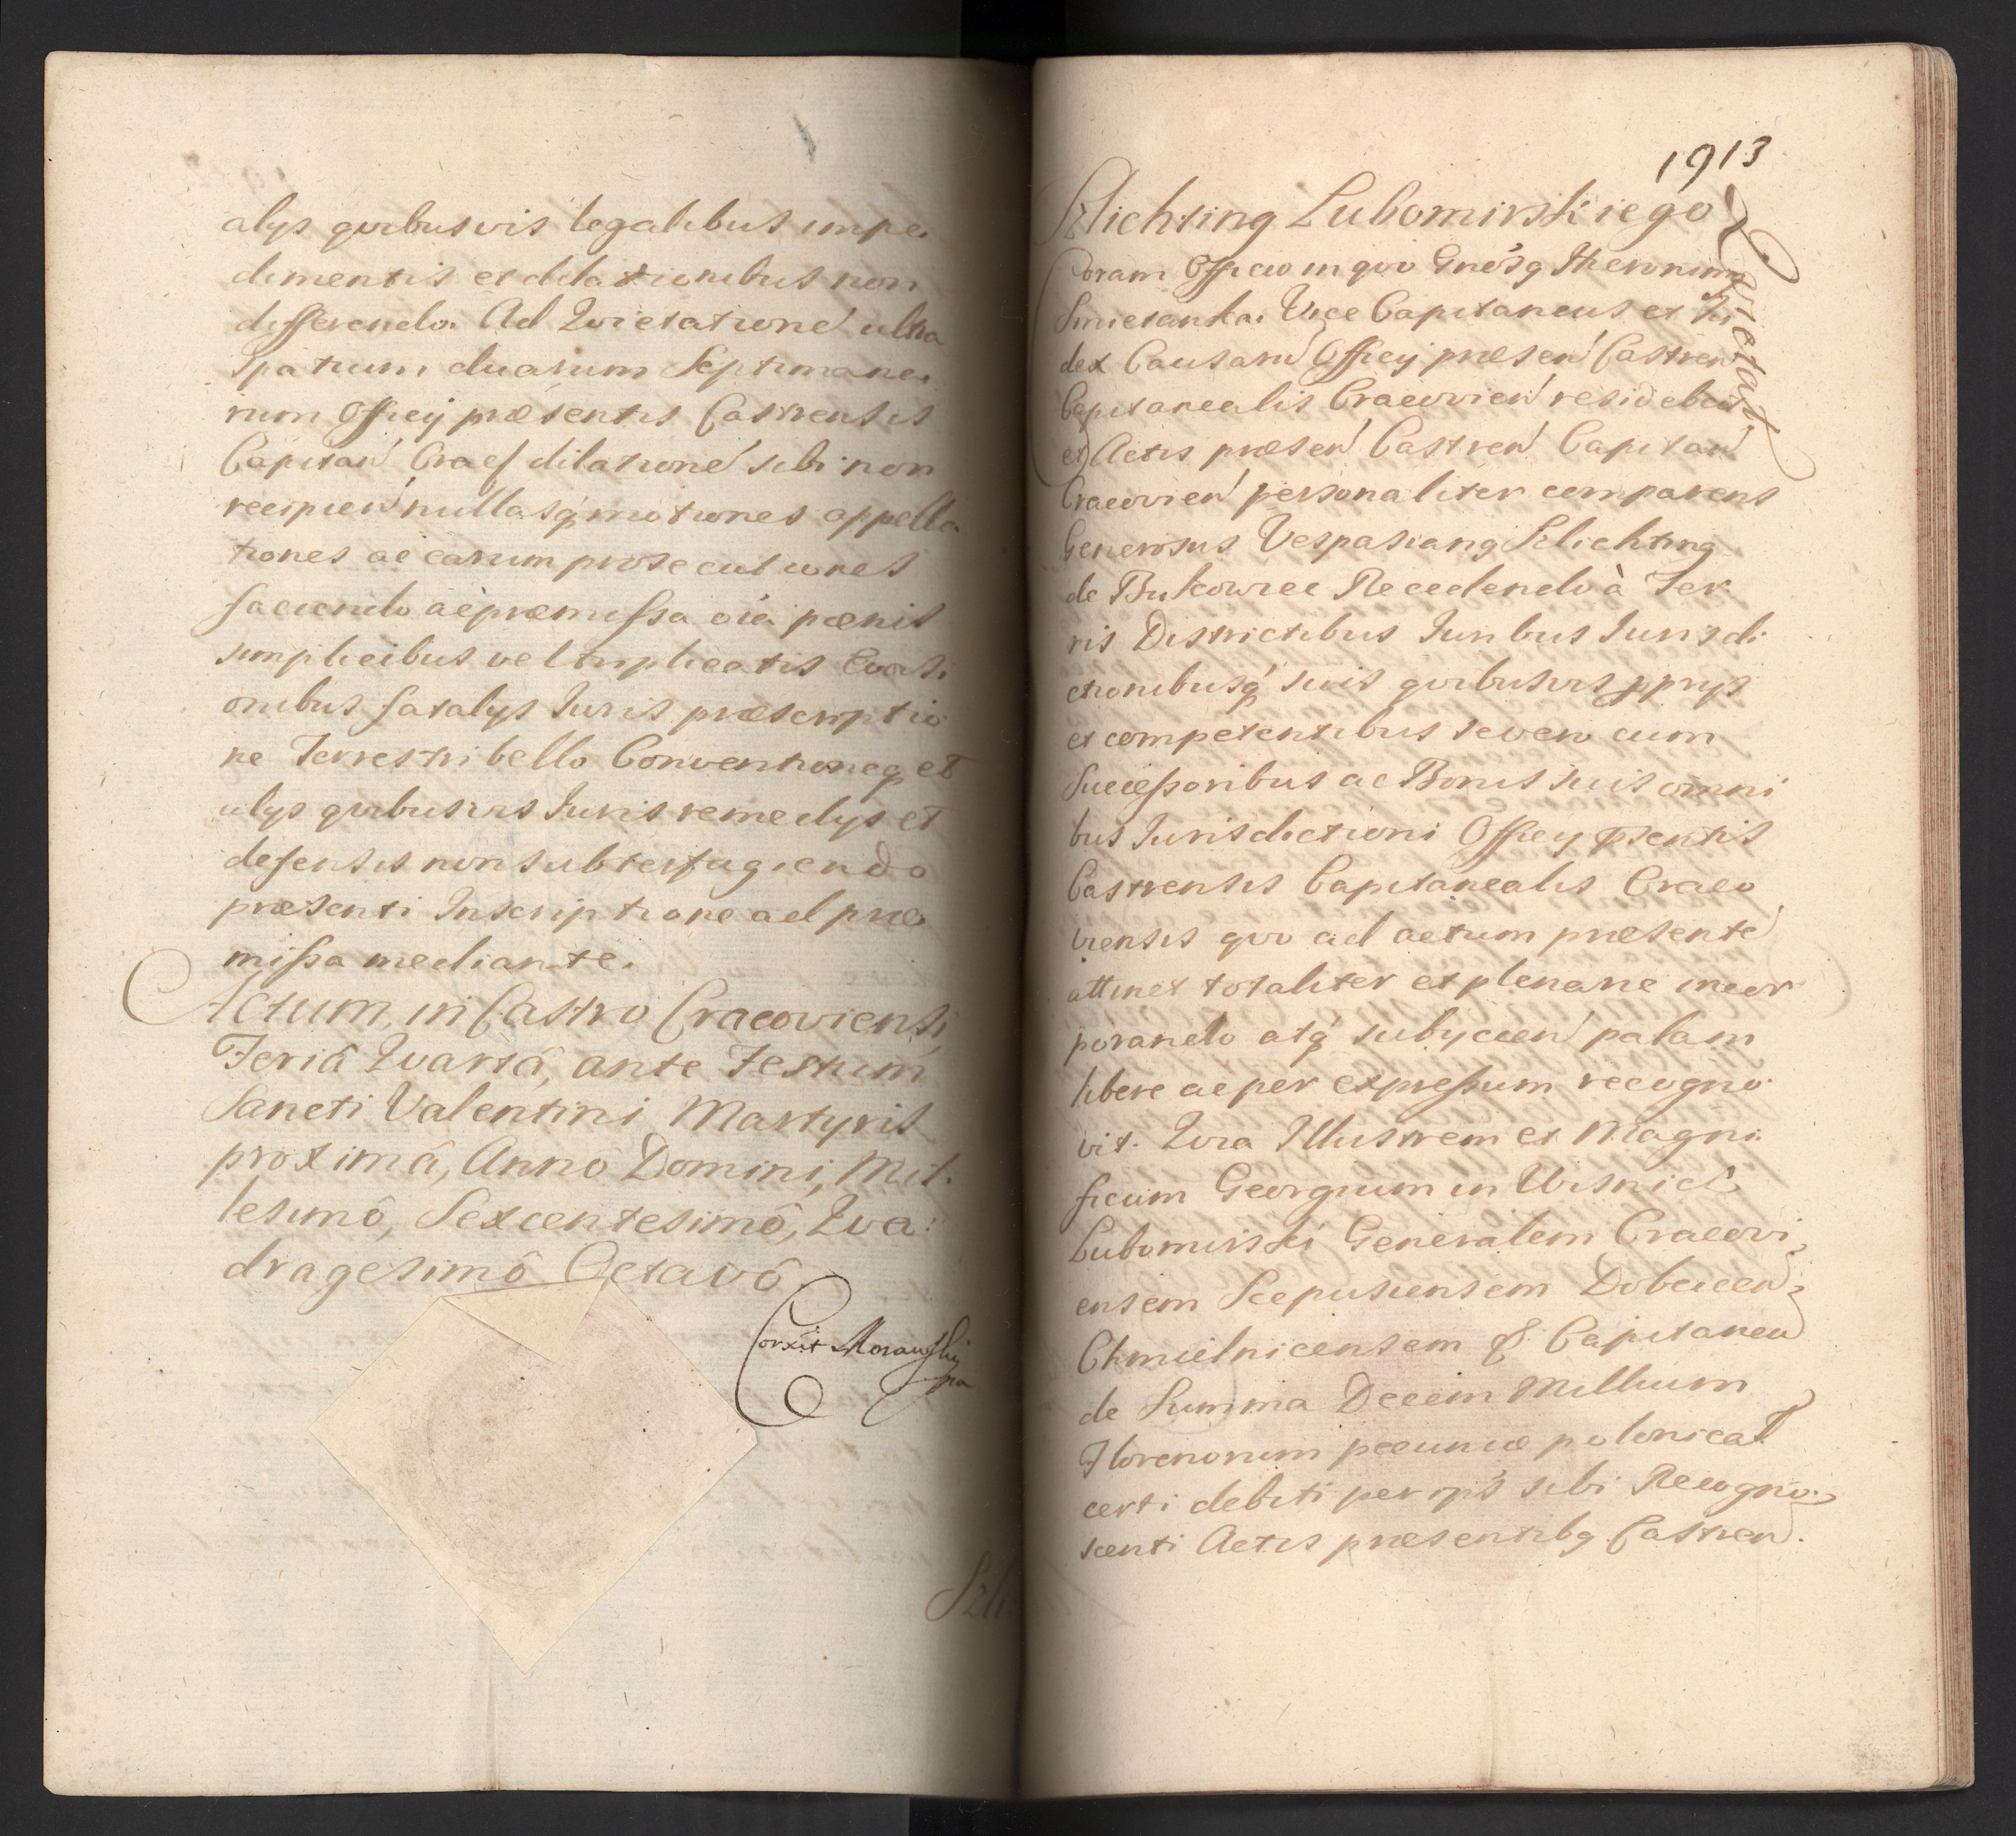 alys quibusvis legalibus impe.
dimentis et dilationibus non
differendo. Ad Quietatione ultra
Spatium duarum Septimana.
rum Officij præsentis Castrensis
Capitan Cracf dilatione sibi non
recipien nullasq motiones appella
tiones ac earum prosecutiones
faciendo ac præmissa oia pœnis
simplicibus vel triplicatis Evasi.
onibus fatalys Iuris præscriptio
ne Terrestri bello Conventioneq et
alys quibusvis Iuris remedys et
defensis non subterfugiendo
præsenti Inscriptione ad præ.
missa mediante.
Actum, in Castro Cracoviensi,
Feriâ Quartâ, ante Festum
Sancti Valentini Martyris
proximâ, Anno Domini, Mil.
lesimô, Sexcentesimô, Qua:
dragesimô Octavô
Corxit Morawskij
mpa
Szli
1913
Szlichting Lubomirskiego
Quietat
Coram Officio in quo Gnosq Hieronimq
Smietanka. Vice Capitaneus et Iu
dex Causaru Officij præsen Castren
Capitanealis Cracovien residebat
et Actis præsen Castren Capitan
Cracovien personaliter comparens
Generosus Vespasianq Szlichting
de Bukowiec Recedendo à Ter.
ris Districtibus Iuribus Iurisdi
ctionibusq suis quibusvis pprys
et competentibus se vero cum
Successoribus ac Bonis suis omni
bus Iurisdictioni Officij pسentis
Castrensis Capitanealis Craco
viensis quo ad actum præsente
attinet totaliter et plenarie incor
porando atq subycien palam
libere ac per expressum recogno.
vit. Quia Illustrem et Magni.
ficum Georgium in Wisnicz
Lubomirski Generalem Cracovi,
ensem Scepusiensem Dobcicen,
Chmielnicensem & Capitaneu
de Summa Decem Millium
Florenorum pecuniæ polonical
certi debiti per ops sibi Recogno.
scenti Actis præsentibq Castren.